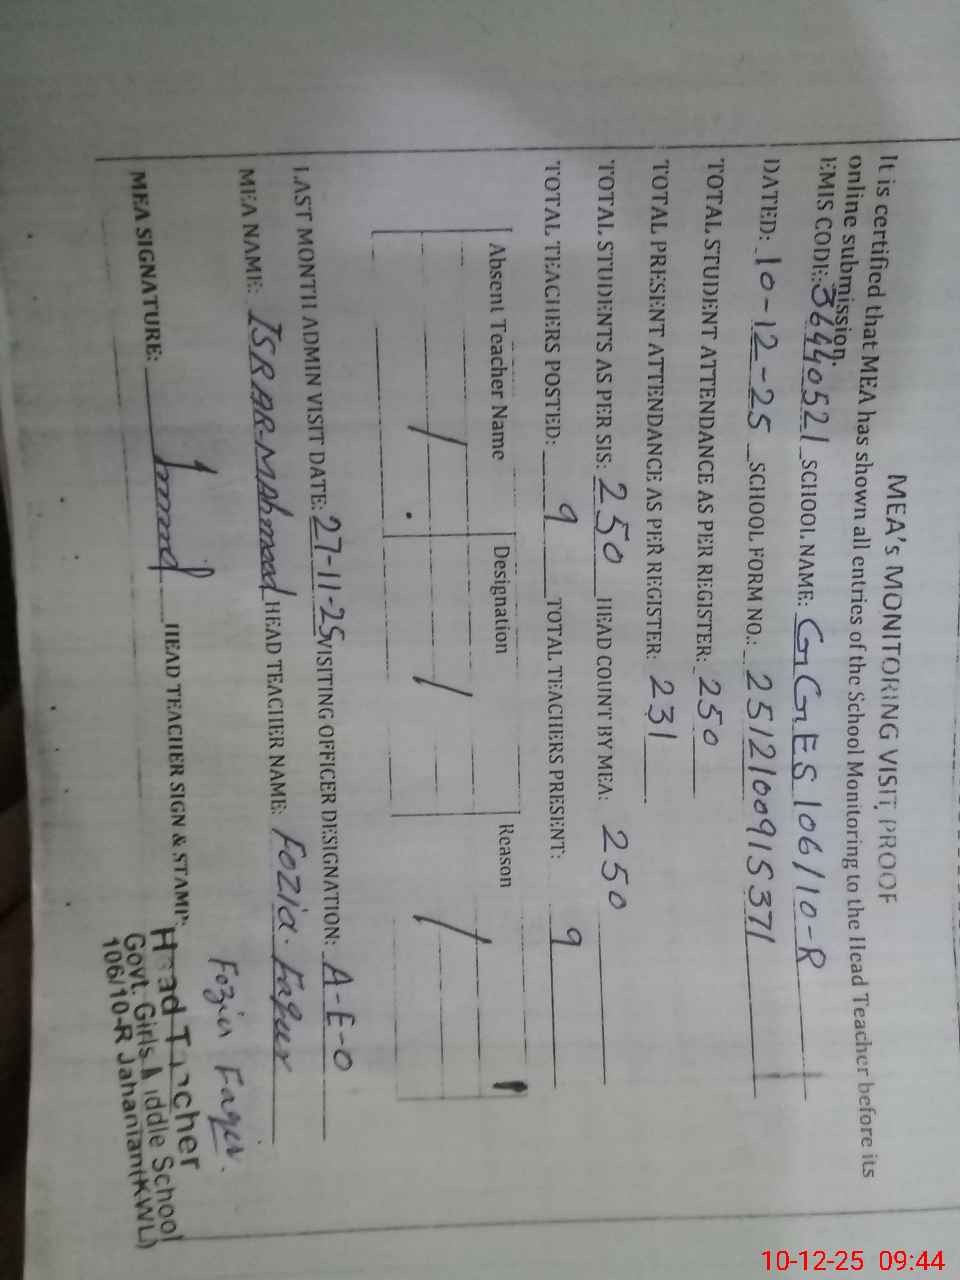 MEA's MONITORING VISIT, PROOF
It is certified that MEA has shown all entries of the School Monitoring to the Head Teacher before its
online submission.
EMIS CODE: 36440521 SCHOOL NAME: GGES 106/10-R
DATED: 10-12-25 SCHOOL FORM NO.: 2512100915371
TOTAL STUDENT ATTENDANCE AS PER REGISTER: 250
TOTAL PRESENT ATTENDANCE AS PER REGISTER: 231
TOTAL STUDENTS AS PER SIS: 250 HEAD COUNT BY MEA: 250
TOTAL TEACHERS POSTED: 9 TOTAL TEACHERS PRESENT: 9
Absent Teacher Name Designation Reason
/ / /
LAST MONTH ADMIN VISIT DATE: 27-11-25 VISITING OFFICER DESIGNATION: A-E-O
MEA NAME: ISRAR-MAhmad HEAD TEACHER NAME: Fozia. Faqir
Fozia Faqir.
MEA SIGNATURE: HEAD TEACHER SIGN & STAMP:
Head Teacher
Govt. Girls Middle School
106/10-R Jahanian(KWL)
10-12-25 09:44